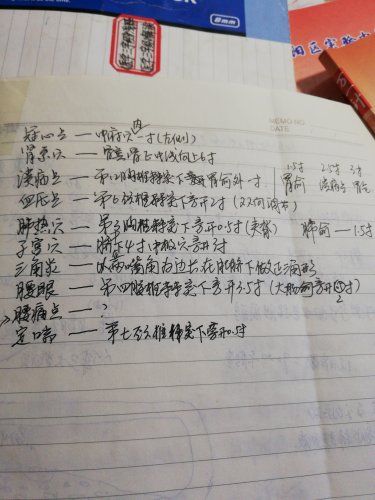 8mm
阳区实验小
MEMO NO
DATE
冠心点 — 中府穴内一寸(左侧)
肾泉穴 — 中线向上6寸
溃疡点 — 第12胸椎棘突下旁开 胃俞外一寸
1.5寸 2.5寸 3寸
胃俞 溃疡点 胃仓
血压点 — 第6颈椎棘突下旁开2寸 (双向调节)
肺热穴 — 第3胸椎棘突下旁开0.5寸(夹脊) 肺俞 — 1.5寸
子宫穴 — 脐下4寸中极穴旁开3寸
三角灸 — 以两嘴角为边长在肚脐下做正三角形
腰眼 — 第四腰椎棘突下旁开3.5寸
腰痛点 — ?
定喘 — 第七颈椎棘突下旁开0.5寸